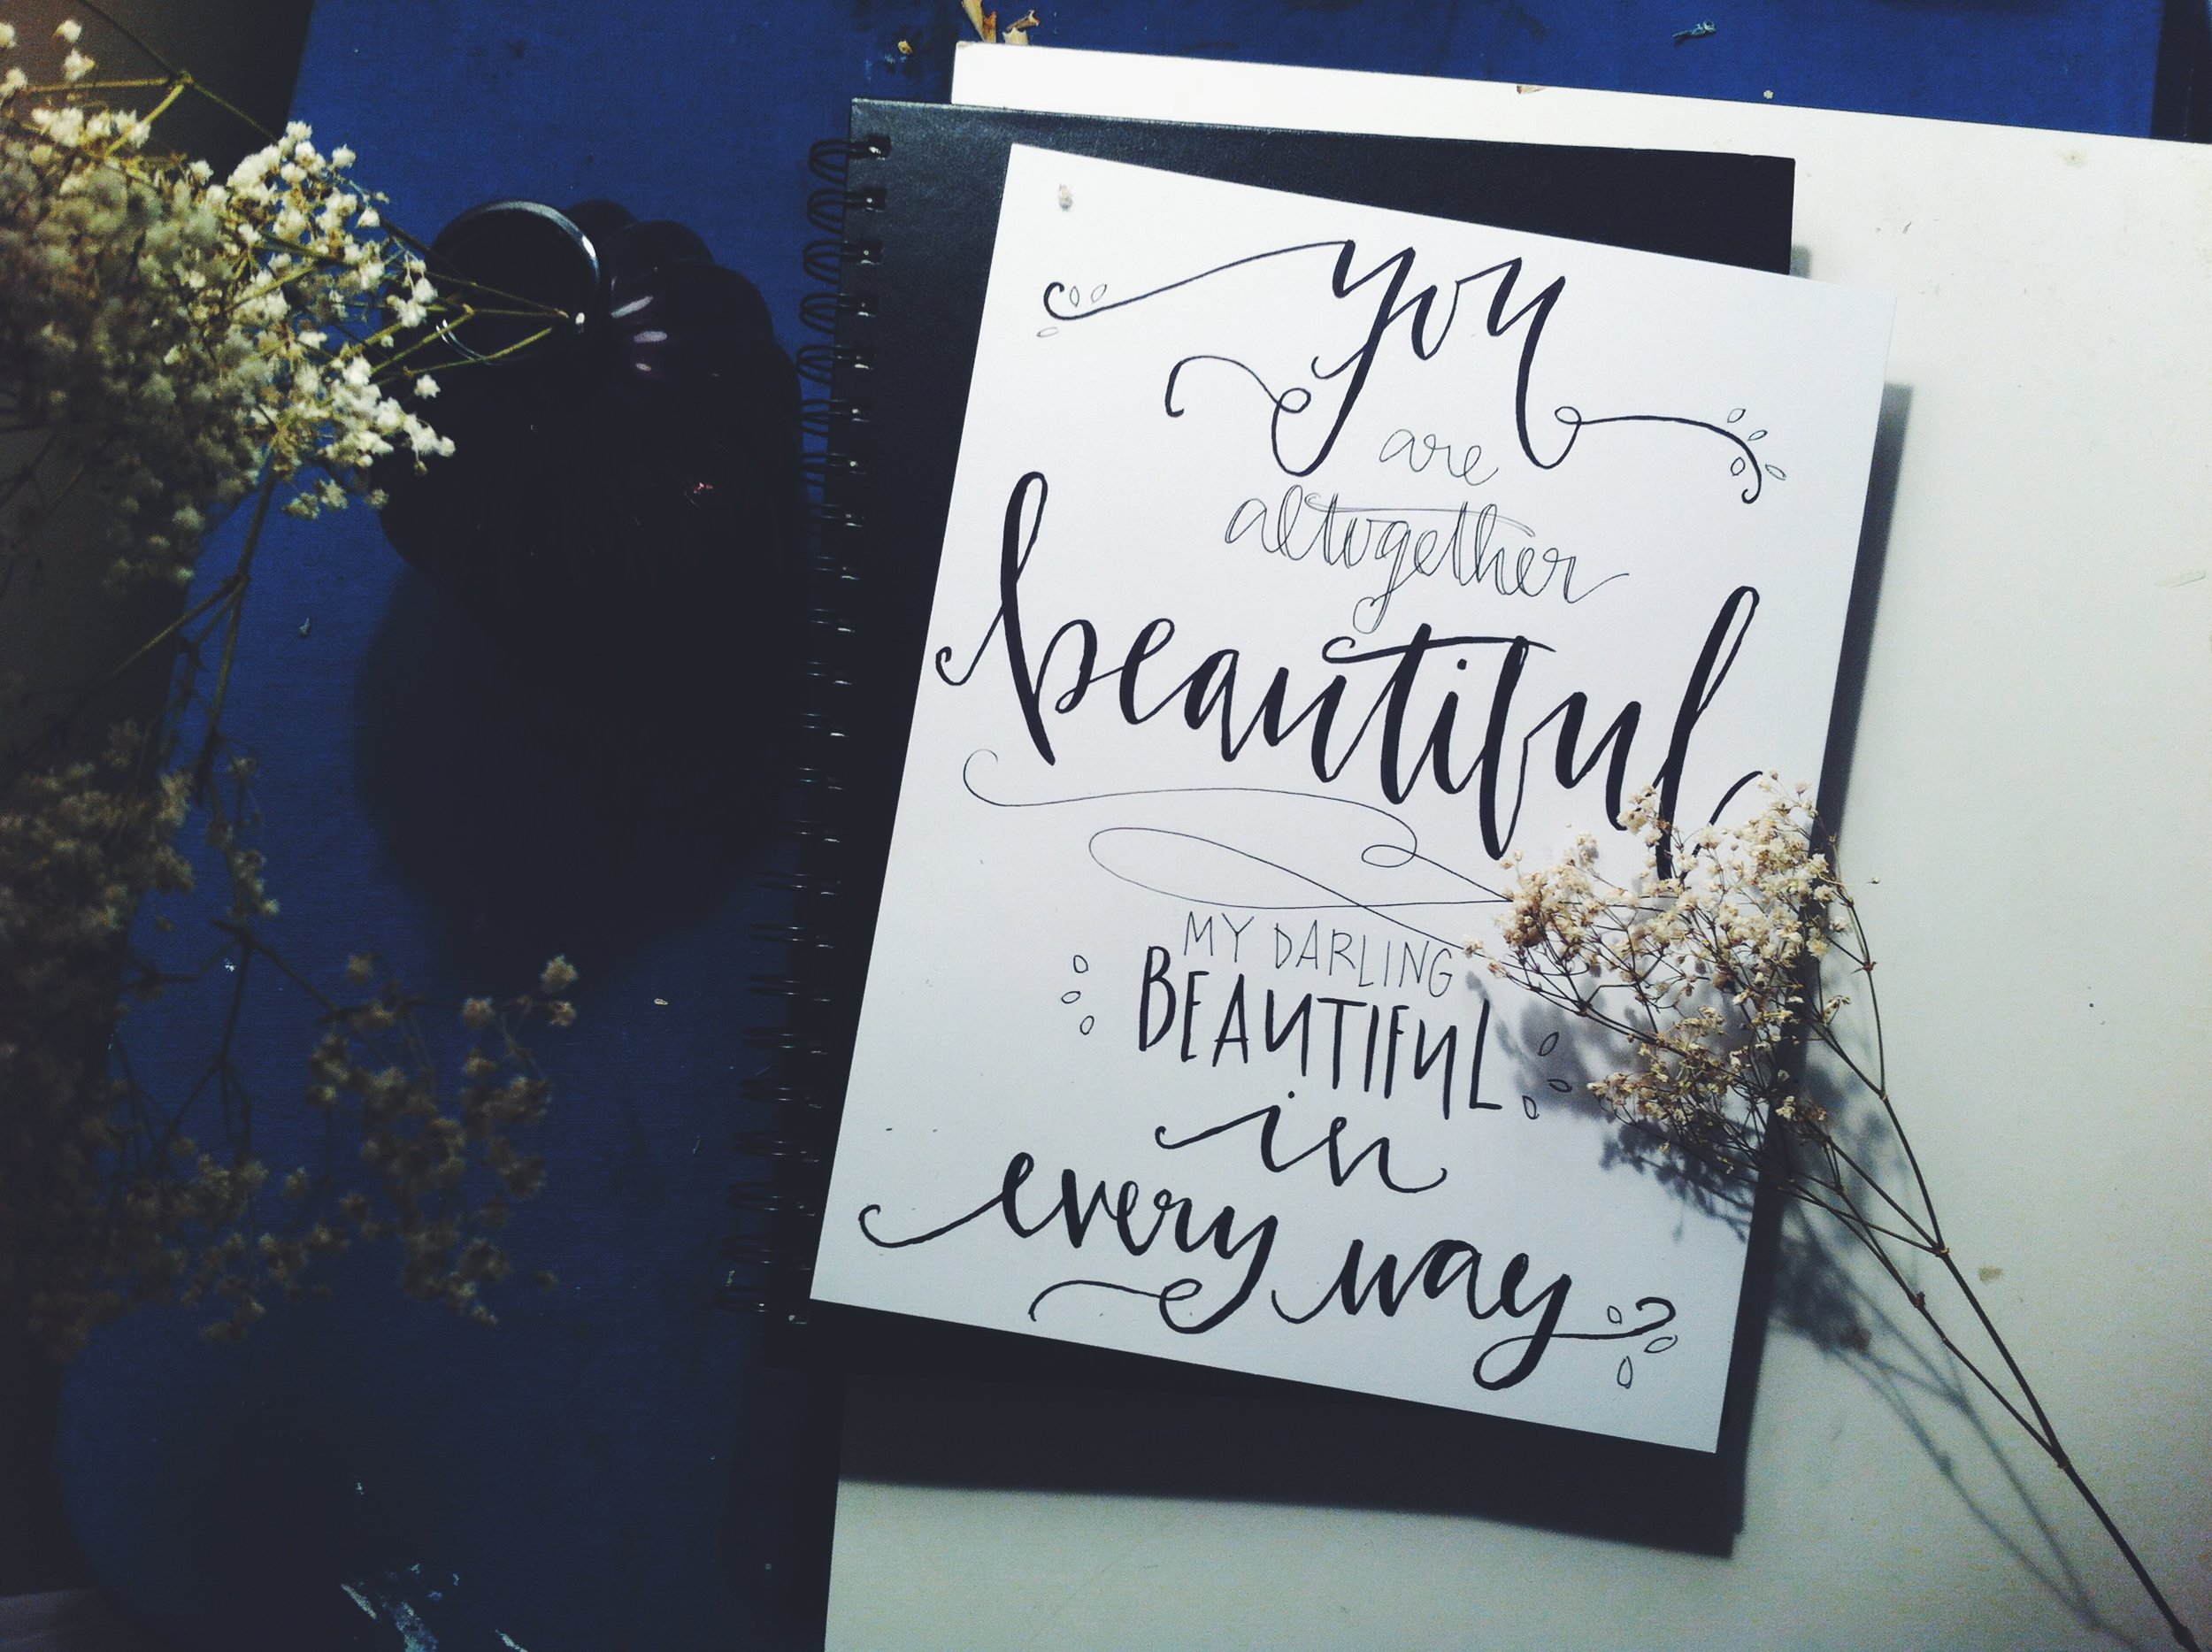 you
are
altogether
beautiful
MY DARLING
BEAUTIFUL
in
every way